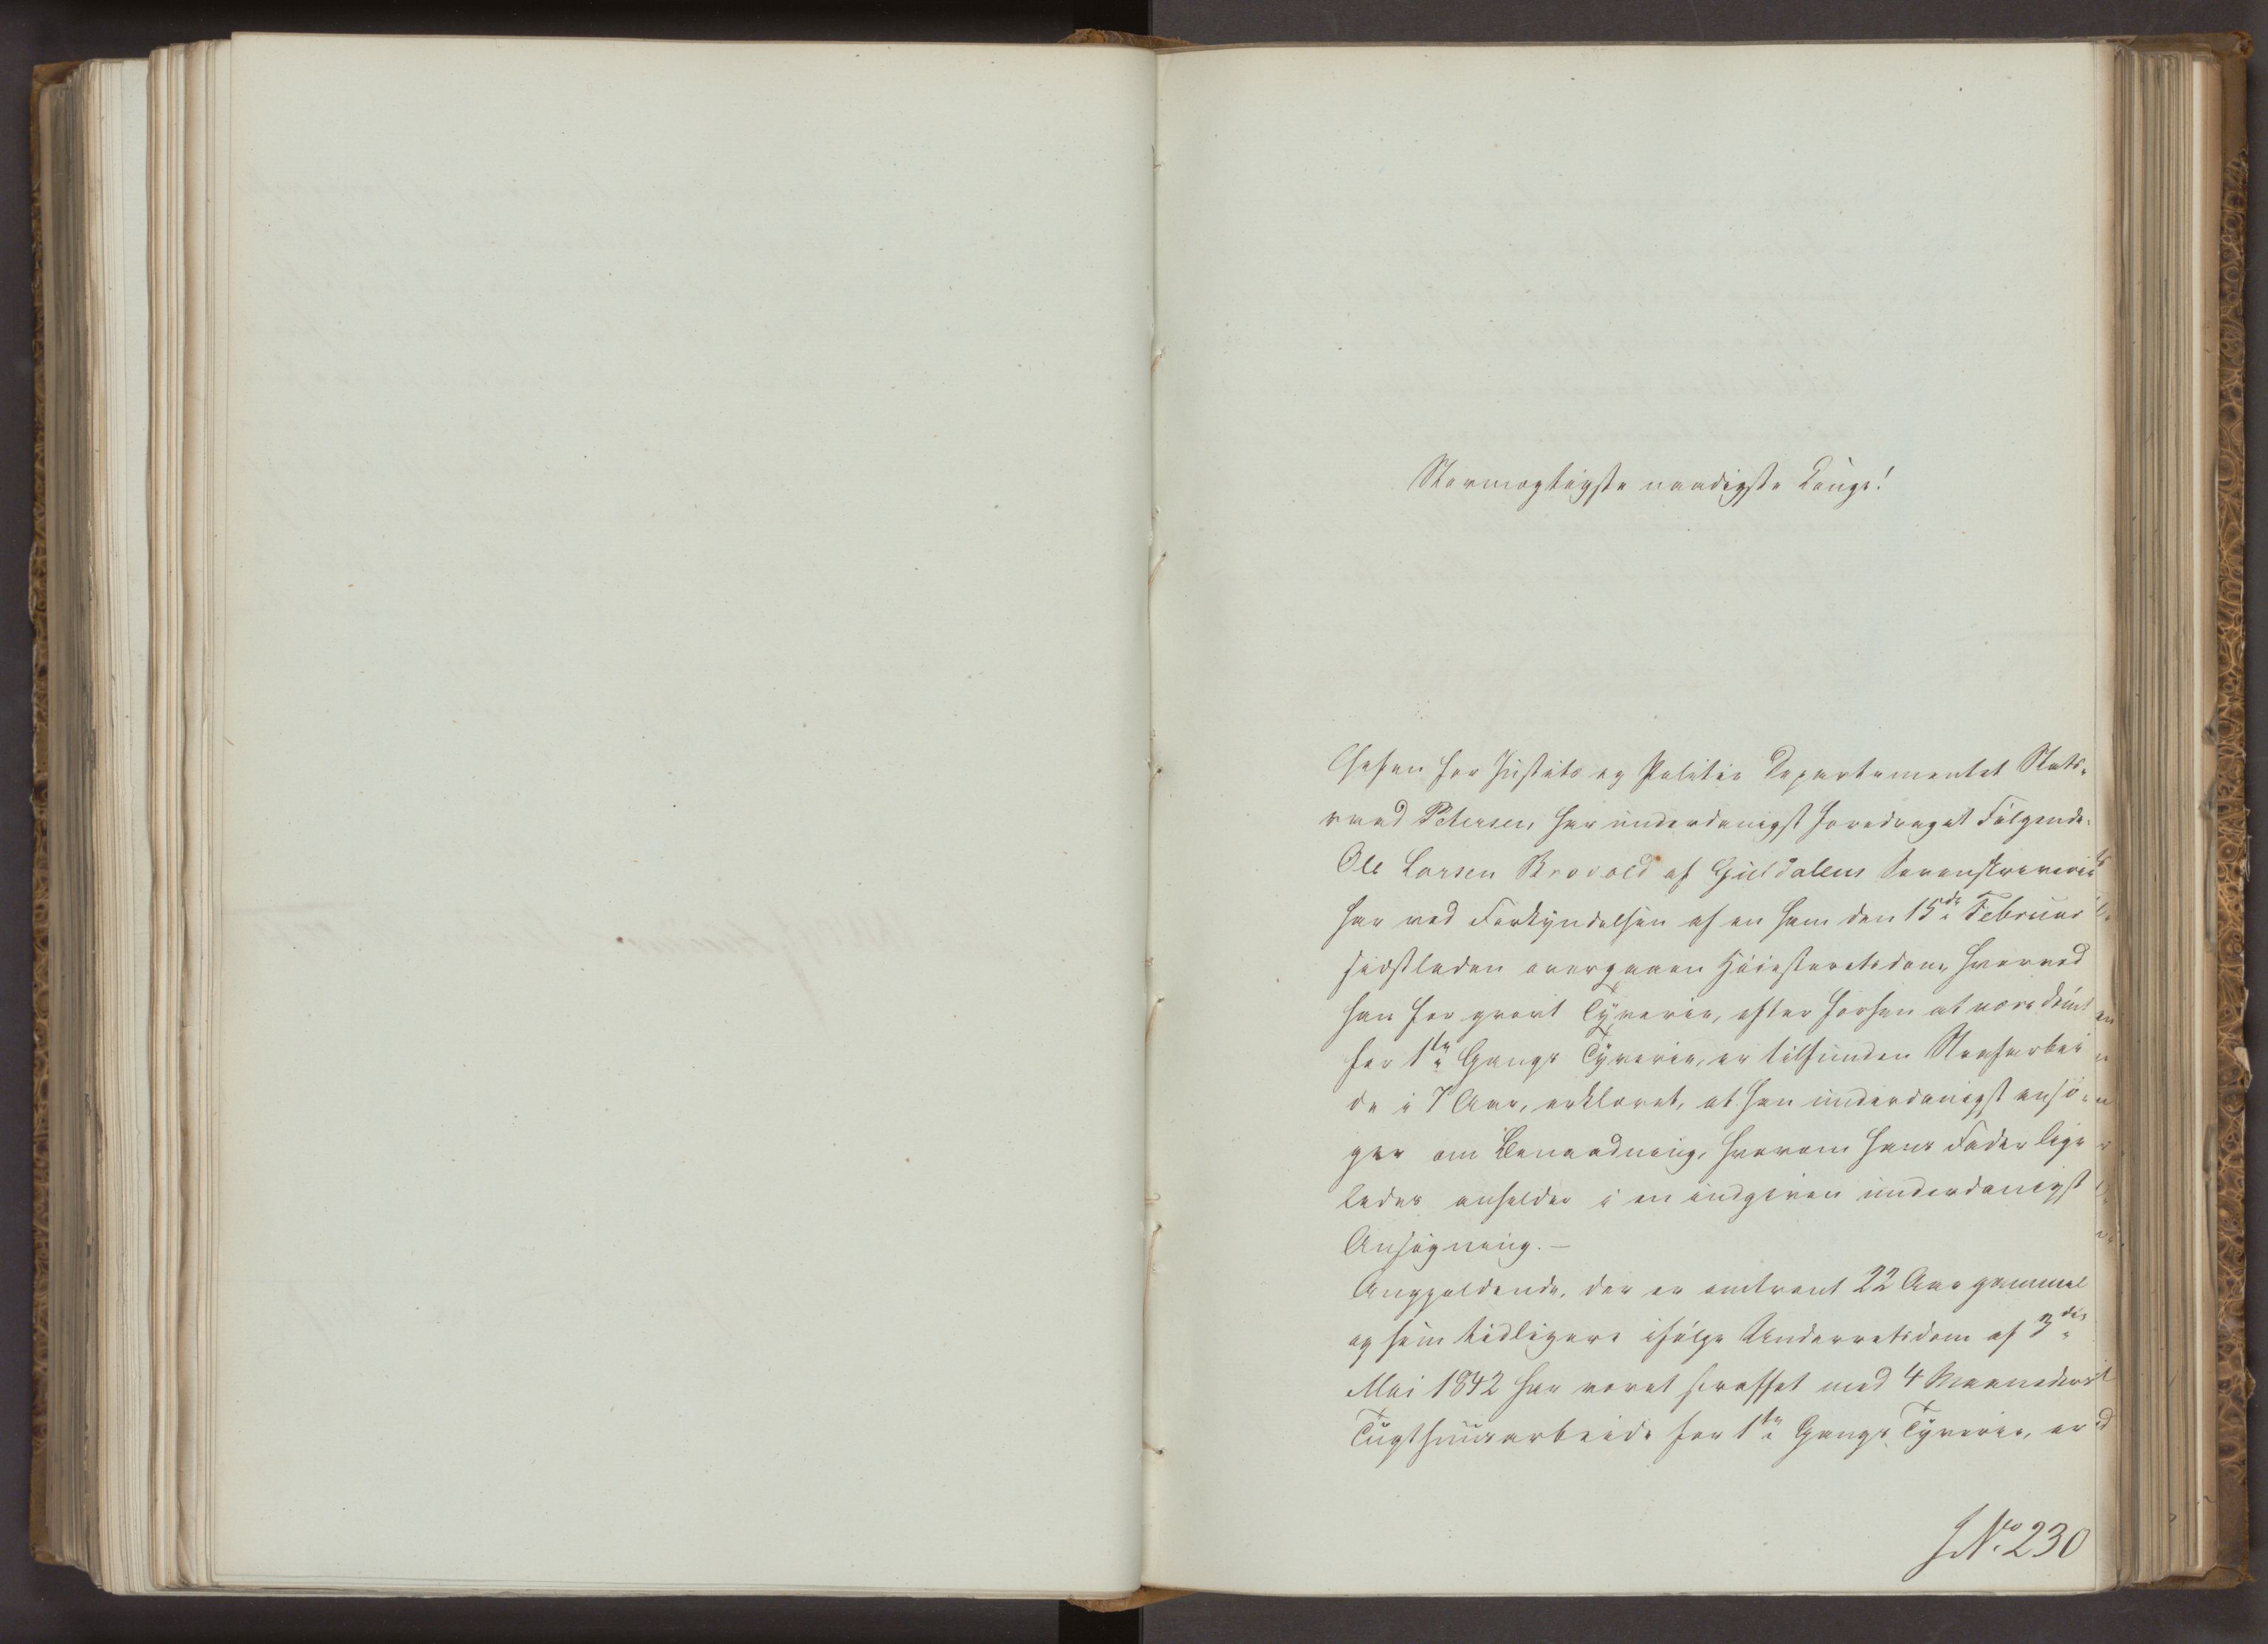 Stormægtigste naadigste Konge!
Chefen for Justits og Politie Departementet Stats-
raad Petersen, har underdanigst foredraget Følgende:
Ole Larsen Brovold af Guldalens Sorenskriverie
har ved Forkyndelsen af en ham den 15de Februar
sidstleden overgaaen Høiesteretsdom, hvorved
han for grovt Tyverie, efter forhen at være dømt
for 1ste Gangs Tyverie, er tilfunden Strafarbei
de i 7 Aar, erklæret, at han underdanigst ansø-
ger om Benaadning, hvorom hans Fader lige
ledes anholder i en indgiven underdanigst
Ansøgning. —
Angjældende, der er omtrent 22 Aar gammel
og som tidligere ifølge Underretsdom af 3die
Mai 1842 har været straffet med 4 Maaneders
Tugthuusarbeide for 1ste Gangs Tyverie, er
J.No. 230